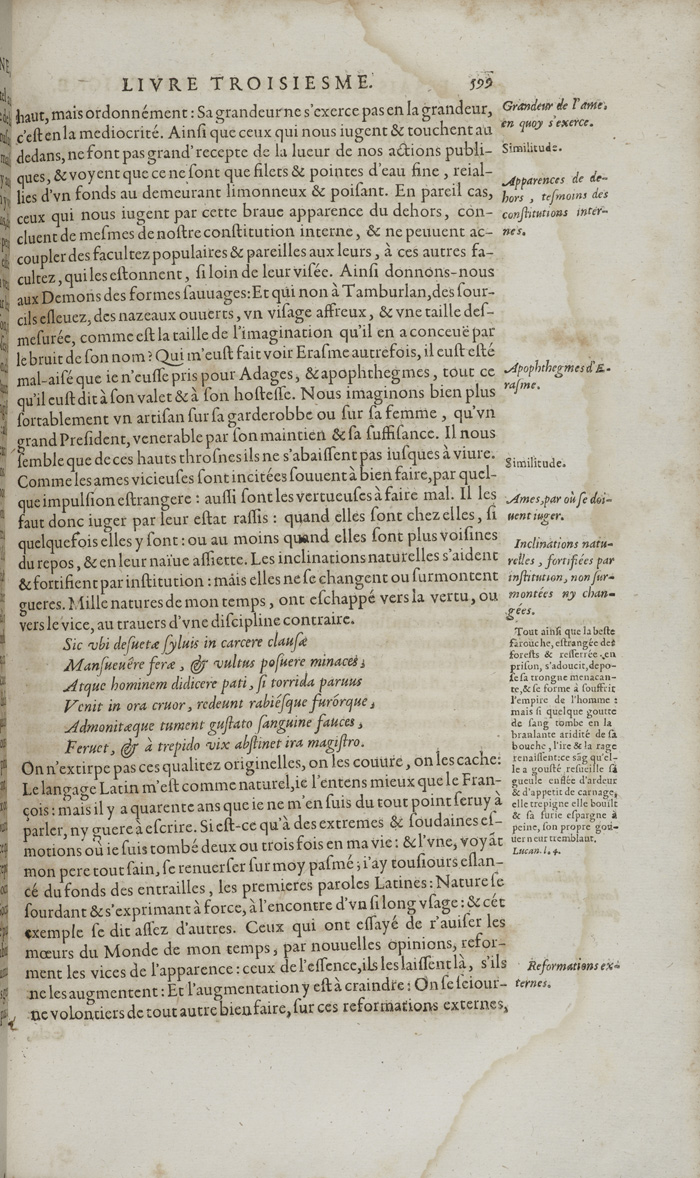 LIVRE TROISIESME. 599
haut, mais ordonnément : Sa grandeur ne s'exerce pas en la grandeur,
c'eſt en la mediocrité. Ainſi que ceux qui nous iugent & touchent au
dedans, ne font pas grand' recepte de la lueur de nos actions publi-
ques, & voyent que ce ne ſont que filets & pointes d'eau fine, reial-
lies d'vn fonds au demeurant limonneux & poiſant. En pareil cas,
ceux qui nous iugent par cette braue apparence du dehors, con-
cluent de meſmes de noſtre conſtitution interne, & ne peuuent ac-
coupler des facultez populaires & pareilles aux leurs, à ces autres fa-
cultez, qui les eſtonnent, ſi loin de leur viſée. Ainſi donnons-nous
aux Demons des formes ſauuages : Et qui non à Tamburlan, des ſour-
cils eſleuez, des nazeaux ouuerts, vn viſage affreux, & vne taille deſ-
meſurée, comme eſt la taille de l'imagination qu'il en a conceuë par
le bruit de ſon nom ? Qui m'euſt fait voir Eraſme autrefois, il euſt eſté
mal-aiſé que ie n'euſſe pris pour Adages, & apophthegmes, tout ce
qu'il euſt dit à ſon valet & à ſon hoſteſſe. Nous imaginons bien plus
ſortablement vn artiſan ſur ſa garderobbe ou ſur ſa femme, qu'vn
grand Preſident, venerable par ſon maintien & ſa ſuffiſance. Il nous
ſemble que de ces hauts throſnes ils ne s'abaiſſent pas iuſques à viure.
Comme les ames vicieuſes ſont incitées ſouuent à bien faire, par quel-
que impulſion eſtrangere : auſſi ſont les vertueuſes à faire mal. Il les
faut donc iuger par leur eſtat raſſis : quand elles ſont chez elles, ſi
quelquefois elles y ſont : ou au moins quand elles ſont plus voiſines
du repos, & en leur naïue aſſiette. Les inclinations naturelles s'aident
& fortifient par inſtitution : mais elles ne ſe changent ou ſurmontent
gueres. Mille natures de mon temps, ont eſchappé vers la vertu, ou
vers le vice, au trauers d'vne diſcipline contraire.
Sic vbi deſuetæ ſyluis in carcere clauſæ
Manſueuêre feræ, & vultus poſuere minaces,
Atque hominem didicere pati, ſi torrida paruus
Venit in ora cruor, redeunt rabiéſque furórque,
Admonitæque tument guſtato ſanguine fauces,
Feruet, & à trepido vix abſtinet ira magiſtro.
On n'extirpe pas ces qualitez originelles, on les couure, on les cache:
Le langage Latin m'eſt comme naturel, ie l'entens mieux que le Fran-
çois : mais il y a quarente ans que ie ne m'en ſuis du tout point ſeruy à
parler, ny guere à eſcrire. Si eſt-ce qu'à des extremes & ſoudaines eſ-
motions où ie ſuis tombé deux ou trois fois en ma vie : & l'vne, voyāt
mon pere tout ſain, ſe renuerſer ſur moy paſmé ; i'ay touſiours eſlan-
cé du fonds des entrailles, les premieres paroles Latines : Nature ſe
ſourdant & s'exprimant à force, à l'encontre d'vn ſi long vſage : & cét
exemple ſe dit aſſez d'autres. Ceux qui ont eſſayé de r'auiſer les
mœurs du Monde de mon temps, par nouuelles opinions, refor-
ment les vices de l'apparence : ceux de l'eſſence, ils les laiſſent là, s'ils
ne les augmentent : Et l'augmentation y eſt à craindre : On ſe ſeiour-
ne volontiers de tout autre bien faire, ſur ces reformations externes,
Grandeur de l'ame,
en quoy s'exerce.
Similitude.
Apparences de de-
hors, teſmoins des
conſtitutions inter-
nes.
Apophthegmes d'E-
raſme.
Similitude.
Ames, par où ſe doi-
uent iuger.
Inclinations natu-
relles, fortifiées par
inſtitution, non ſur-
montées ny chan-
gées.
Tout ainſi que la beſte
farouche, eſtrangée des
foreſts & reſſerrée en
priſon, s'adoucit, depo-
ſe ſa trongne menacan-
te, & ſe forme à ſouffrir
l'empire de l'homme :
mais ſi quelque goutte
de ſang tombe en la
braulante aridité de ſa
bouche, l'ire & la rage
renaiſſent: ce sāg qu'el-
le a gouſté reſueille ſa
gueule enflée d'ardeur
& d'appetit de carnage,
elle trepigne elle bouilt
& ſa furie eſpargne à
peine, ſon propre gou-
uerneur tremblant.
Lucan. l. 4.
Reformations ex-
ternes.